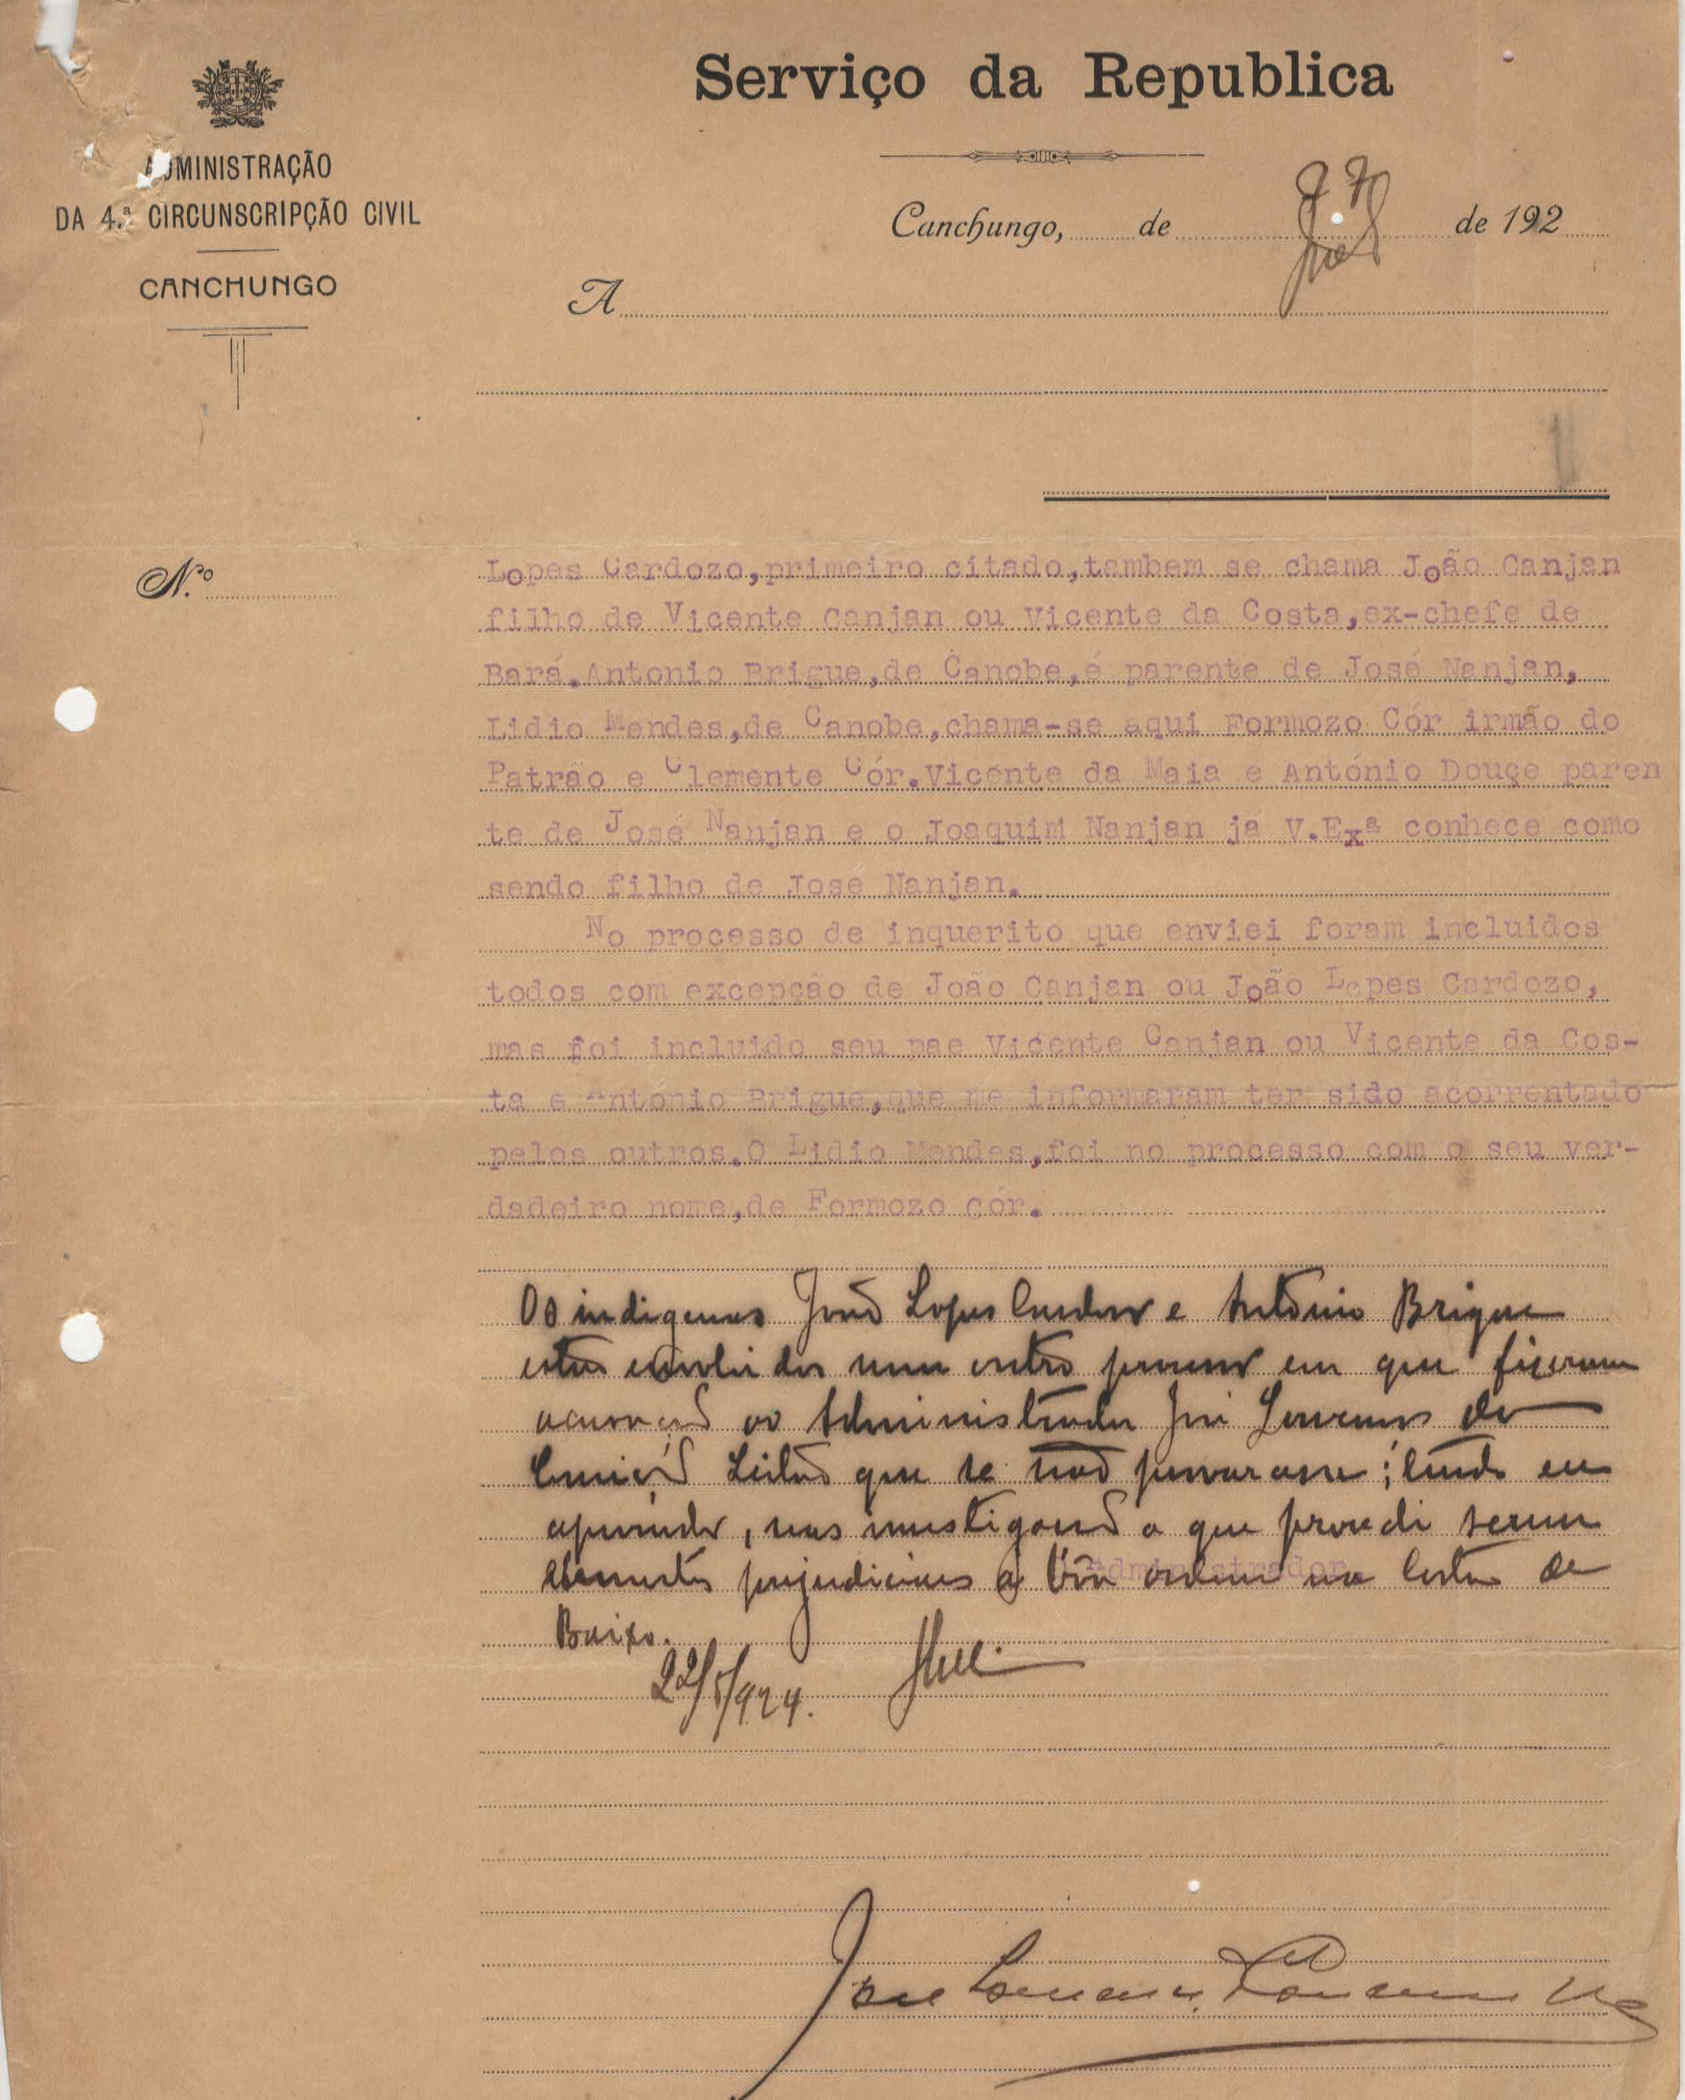 Serviço da Republica
ADMINISTRAÇÃO
DA 4.ª CIRCUNSCRIPÇÃO CIVIL
CANCHUNGO
Canchungo, de de 192
A
N.º
Lopes Cardozo,primeiro citado,tambem se chama João Canjan
filho de Vicente Canjan ou Vicente da Costa,ex-chefe de
Bará.Antonio Brigue,de Canobe,é parente de José Nanjan,
Lidio Mendes,de Canobe,chama-se aqui Formozo Cór irmão do
Patrão e Clemente Cór.Vicente da Maia e António Douçe paren
te de José Nanjan e o Joaquim Nanjan já V.Exª conhece como
sendo filho de José Nanjan.
No processo de inquerito que enviei foram incluidos
todos com excepção de João Canjan ou João Lopes Cardozo,
mas foi incluido seu pae Vicente Canjan ou Vicente da Cos-
ta e António Brigue,que me informaram ter sido acorrentado
pelos outros.O Lidio Mendes,foi no processo com o seu ver-
dadeiro nome,de Formozo cór.
Os indigenas João Lopes Cardozo e António Brigue
estão envolvidos num outro processo em que fizeram
acusação ao Administrador José Lourenço da
Conceição Leitão que se não provaram;
mas investigando a que procedi serem
elementos prejudiciaes á bôa ordem na Costa de
Baixo.
Administrador
22/5/924.